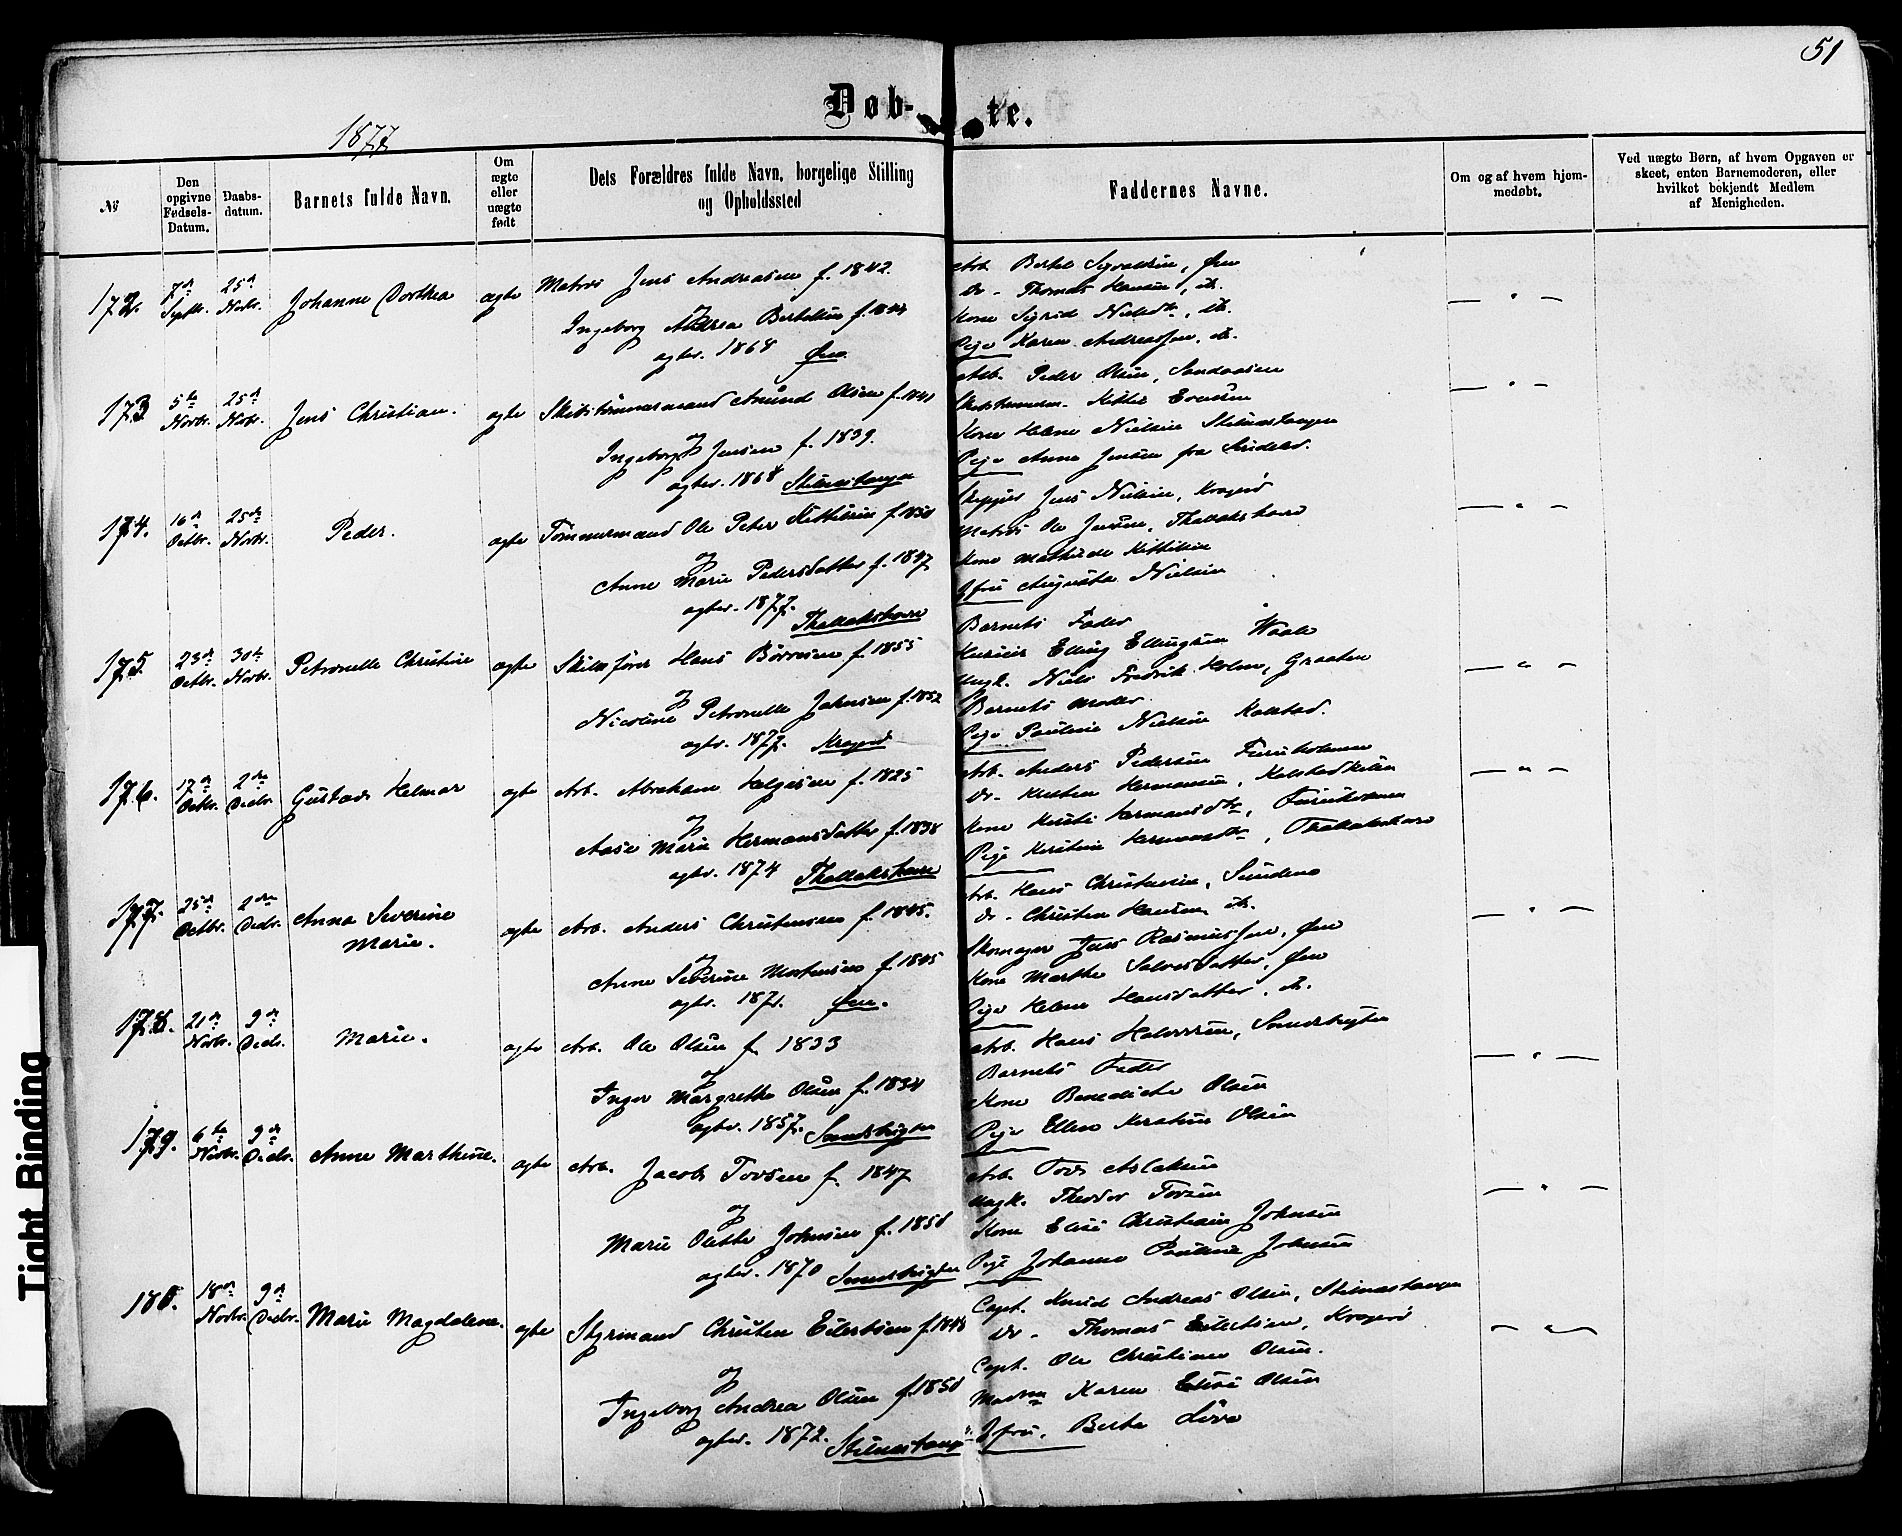 51
Døb- te.
1877
№
Den opgivne Fødsels-Datum.
Daabs-datum.
Barnets fulde Navn.
Om ægte eller uægte født
Dets Forældres fulde Navn, borgelige Stilling og Opholdssted
Faddernes Navne.
Om og af hvem hjem-medøbt.
Ved uægte Børn, af hvem Opgaven er skeet, enten Barnemoderen, eller hvilket bekjendt Medlem af Menigheden.
172. 7de Septbr. 25de Novbr. Johanne Dorthea ægte
Matros Jens Andreasen f. 1842.
og
Ingeborg Andrea Bertelsen f. 1844
ægtev. 1868 Øen
Arb. Bertel Sigvaldsen, Øen
Do - Thomas Hansen, ib.
Kone Sigrid Nielsdtr, ib.
Pige Karen Andreassen, ib.
173 5te Novbr. 25de Novbr. Jens Christian. ægte
Skibstømmermand Amund Olsen f. 1841
og
Ingeborg Jensen f. 1839.
ægtev. 1868 Stilnestangen
Arb. Peder Olsen, Sandaasen
Skibstømmerm. Kittel Evensen
Kone Helene Nielsen Stilnestangen
Pige Anne Jensen fra
174. 16de Octbr. 25de Novbr. Peder. ægte
Tømmermand Ole Peter Kittilsen f. 1850
og
Anne Marie Pedersdatter f. 1847
ægtev. 1877. Thallakshavn
Skipper Jens Nielsen, Kragerø
Matros Ole Jensen, Thallakshavn
Kone Mathilde Kittilsen
Jfru Augusta Nielsen
175 23de Octbr. 30te Novbr. Petronelle Christine ægte
Skibsfører Hans Börresen f. 1855
og
Nicoline Petronelle Johnsen f. 1852
ægtv. 1877. Kragerø
Barnets Fader
Elling Ellingsen Waale
Ungk. Niels Fredrik Holm, Graaten
Barnets Moder
Pige Pauline Nielsen Kalstad.
176. 17de Octbr. 2den Decbr. Gustav Helmer ægte
Arb. Abraham Helgesen f. 1825
og
Aase Marie Hermansdatter f. 1838
ægtv. 1874 Thallakshavn
Arb. Anders Pedersen Furuholmen
Do - Kristen Hermansen, Kalstadkilen
Kone Kirsti Hermansdtr, Furuholmen
Pige Kirstine Hermansdtr, Thallakshavn
177. 25de Octbr. 2den Decbr. Anna Severine ægte
Marie.
Arb. Anders Christensen f. 1845.
og
Anne Severine Mortensen f. 1845
ægtv. 1871. Øen.
Arb. Hans Christensen,
Do - Christen Hansen ib.
Skomager Jens Rasmussen, Øen
Kone Marthe Salvesdatter, Øen
Pige Helene Hansdatter, ib.
178. 21de Novbr. 9de Decbr. Marie. ægte
Arb. Ole Olsen f. 1833
og
Inger Margrethe Olsen f. 1834
ægtev. 1857. Smedsbugten
Arb. Hans Halvorsen, Smedsbugten
Barnets Fader
Kone Benedicte Olsen
Pige Ellen Kirstine Olsen
179. 6te Novbr. 9de Decbr. Anne Marthine. ægte
Arb. Jacob Torsen f. 1847
og
Marie Olette Johnsen f. 1850
ægtev. 1870 Smedsbugten
Arb. Tov Aslaksen
Ungk. Theodor Torsen
Kone Elise Christine Johnsen
Pige Johanne Pauline Johnsen
180. 18de Novbr. 9de Decbr. Marie Magdalene. ægte
Styrmand Christen Eilertsen f. 1848
og
Ingeborg Andrea Olsen f. 1850
ægtev. 1872. Stilnestangen
Capt. Knud Andreas Olsen, Stilnestangen
Do - Thomas Eilertsen, Kragerø
Capt. Ole Christian Olsen.
Madm Karen Elise Olsen
Jfru. Berthe Löve
Tight Binding